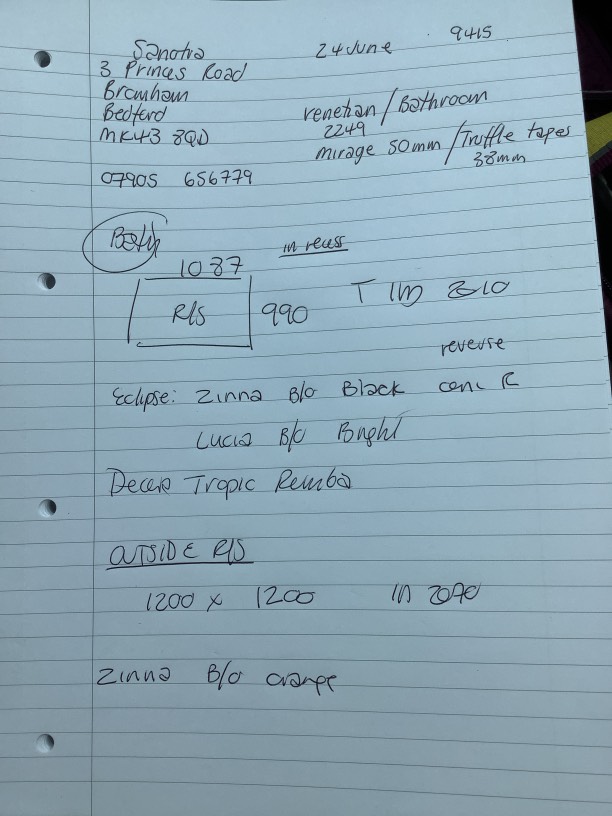 9415
Sanotra 24 June
3 Princes Road
Bromham
Bedford venetian / Bathroom
2249
MK43 8QD mirage 50mm / Truffle tapes
38mm
07905 656779
Bath in recess
1087
R/S 990 T IM 2010
reverse
Eclipse: Zinna B/o Black
Lucia B/o Bright
Decora Tropic Remba
OUTSIDE R/S
1200 x 1200 IM 2090
Zinna B/o orange